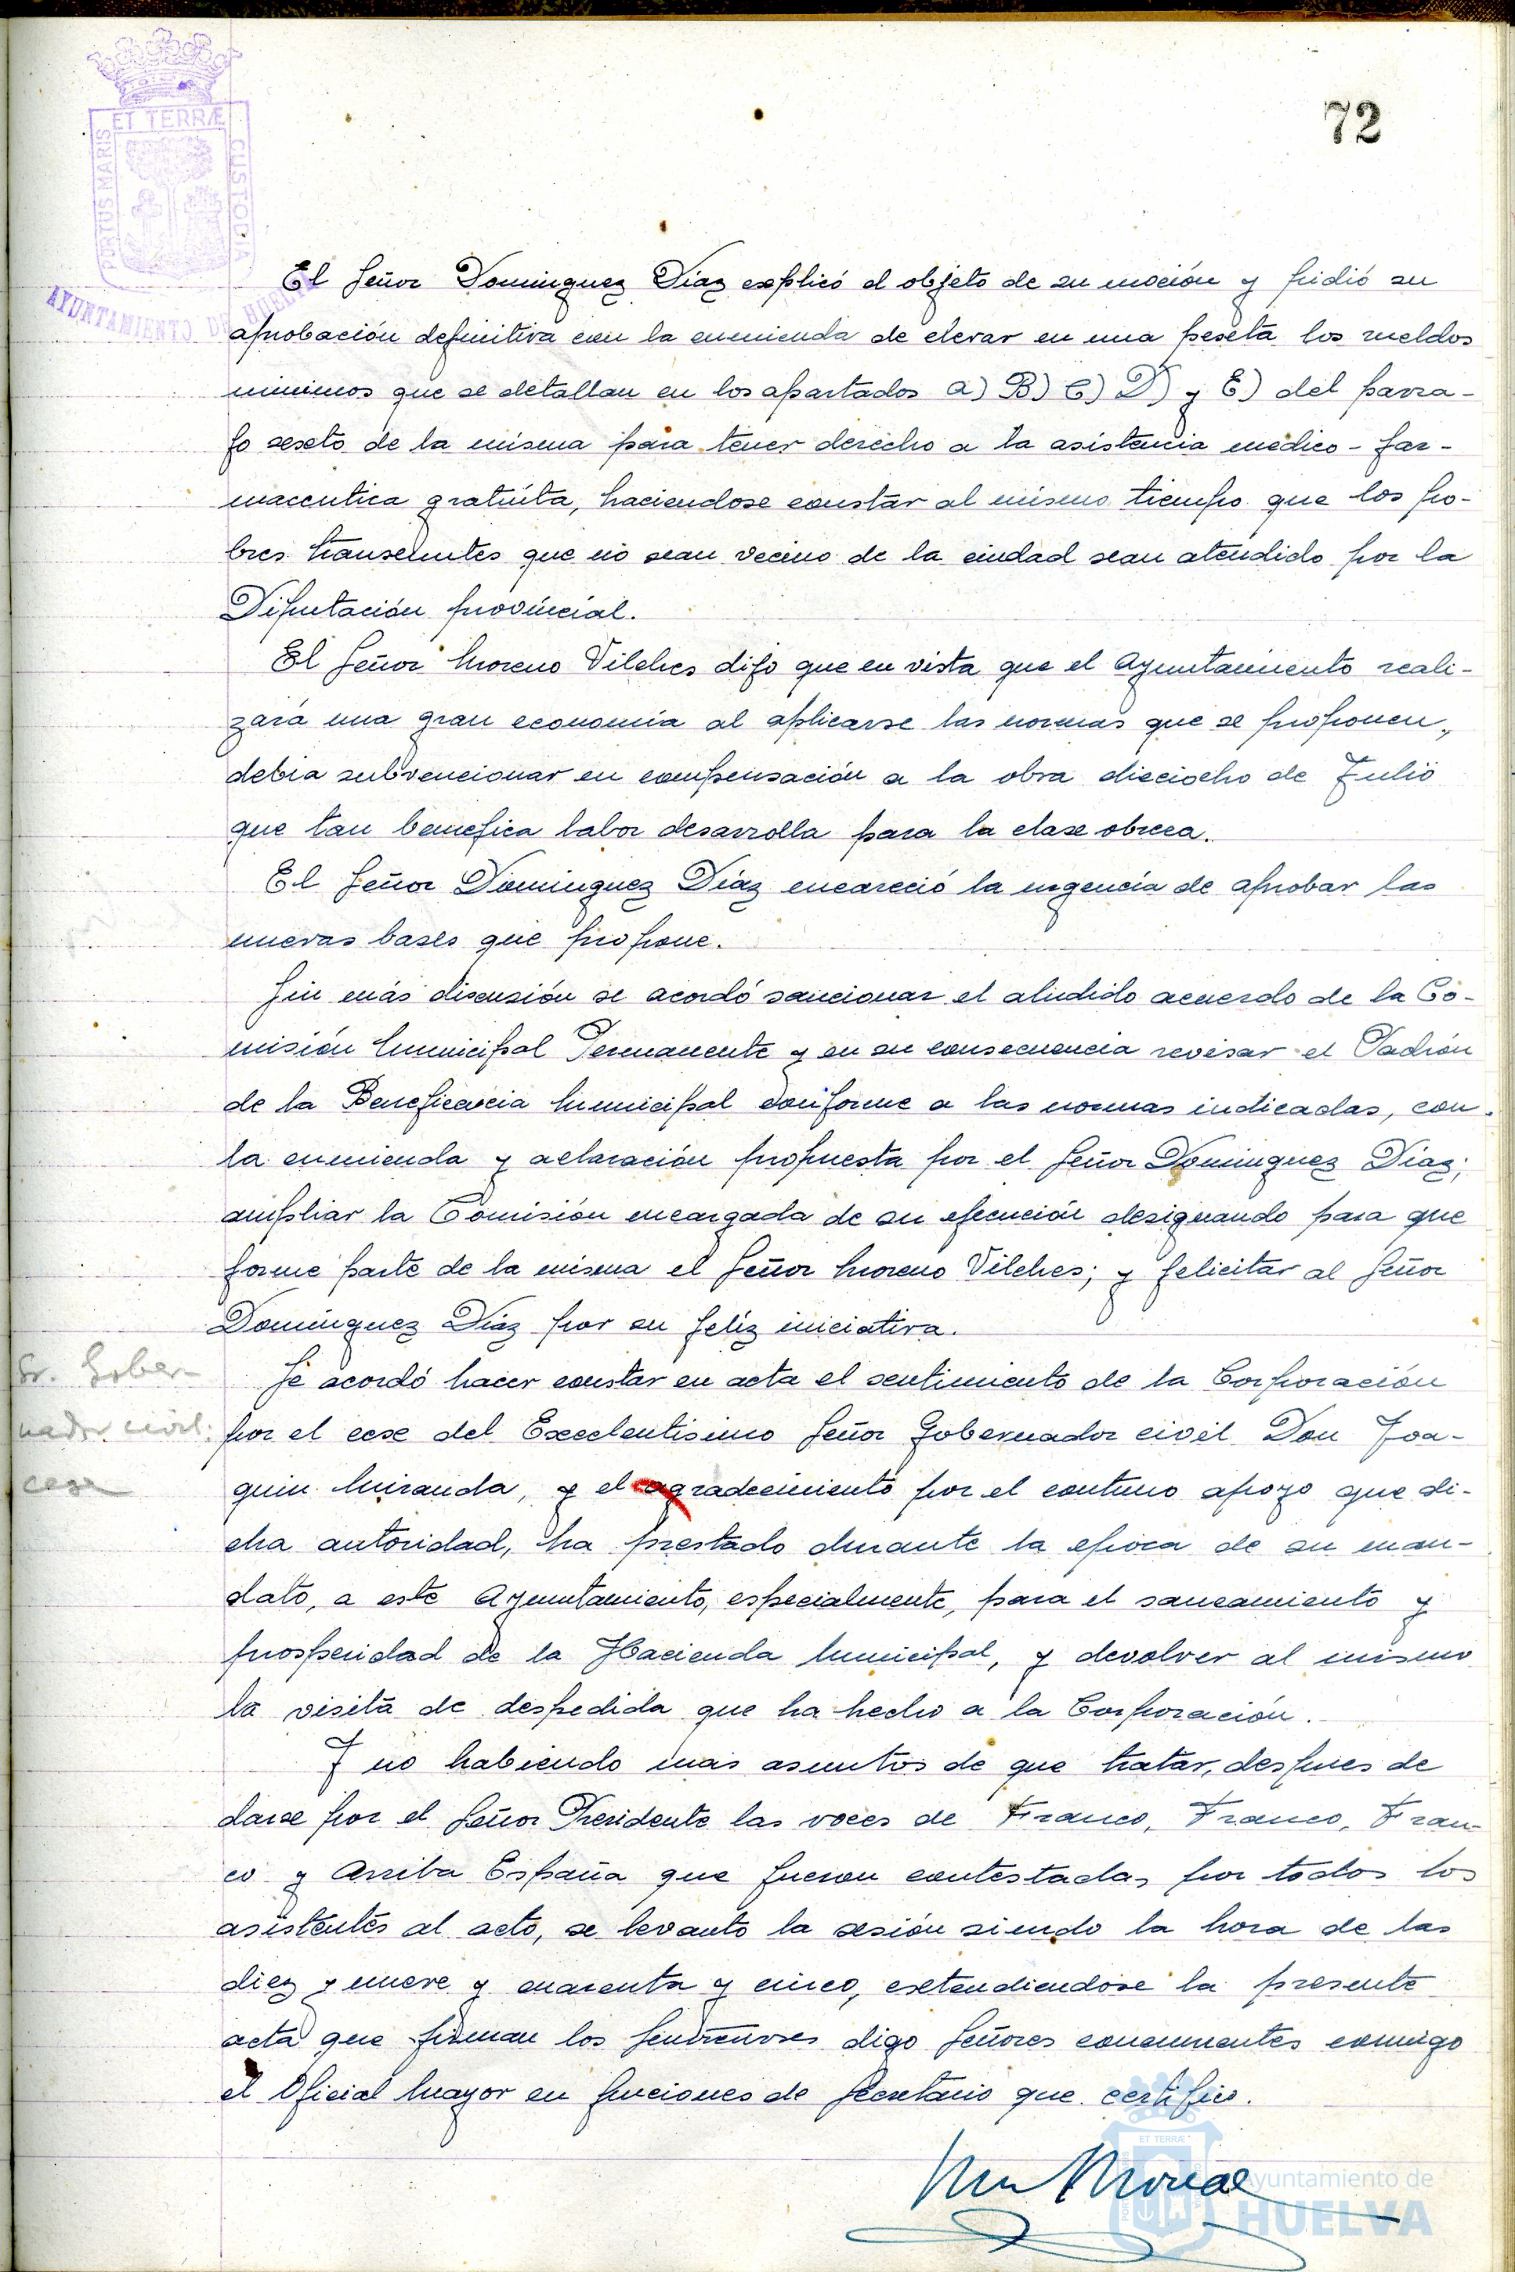 72
PORTUS MARIS
ET TERRÆ
CUSTODIA
AYUNTAMIENTO DE HUELVA
El Señor Dominguez Díaz explicó el objeto de su moción y pidió su
aprobación definitiva con la enmienda de elevar en una peseta los sueldos
minimos que se detallan en los apartados a) B) C) D) y E) del parra-
fo sexto de la misma para tener derecho a la asistencia medico-far-
maceutica gratuíta, haciendose constar al mismo tiempo que los po-
bres transeuntes que no sean vecino de la ciudad sean atendido por la
Diputación provincial.
El Señor Moreno Vilches dijo que en vista que el Ayuntamiento reali-
zará una gran economía al aplicarse las normas que se proponen,
debia subvencionar en compensación a la obra dieciocho de Julio
que tan benefica labor desarrolla para la clase obrera.
El Señor Dominguez Díaz encareció la urgencia de aprobar las
nuevas bases que propone.
Sin más discusión se acordó sancionar el aludido acuerdo de la Co-
misión Municipal Permanente y en su consecuencia revisar el Padrón
de la Beneficencia Municipal conforme a las normas indicadas, con
la enmienda y aclaración propuesta por el Señor Dominguez Díaz;
ampliar la Comisión encargada de su ejecución designando para que
forme parte de la misma el Señor Moreno Vilches; y felicitar al Señor
Domínguez Díaz por su felíz iniciativa.
Sr. Gober-
nador civil:
cese
Se acordó hacer constar en acta el sentimiento de la Corporación
por el cese del Excelentisimo Señor Gobernador civil Don Joa-
quin Miranda, y el agradecimiento por el contuno apoyo que di-
cha autoridad, ha prestado durante la epoca de su man-
dato, a este Ayuntamiento, especialmente, para el saneamiento y
prosperidad de la Hacienda Municipal, y devolver al mismo
la visita de despedida que ha hecho a la Corporación.
Y no habiendo mas asuntos de que tratar, despues de
darse por el Señor Presidente las voces de Franco, Franco, Fran-
co y Arriba España que fueron contestadas por todos los
asistentes al acto, se levanto la sesión siendo la hora de las
diez y nueve y cuarenta y cinco, extendiendose la presente
acta que firman los digo Señores concurrentes conmigo
el Oficial Mayor en funciones de Secretario que certifico.
ET TERRÆ
Ayuntamiento de
HUELVA